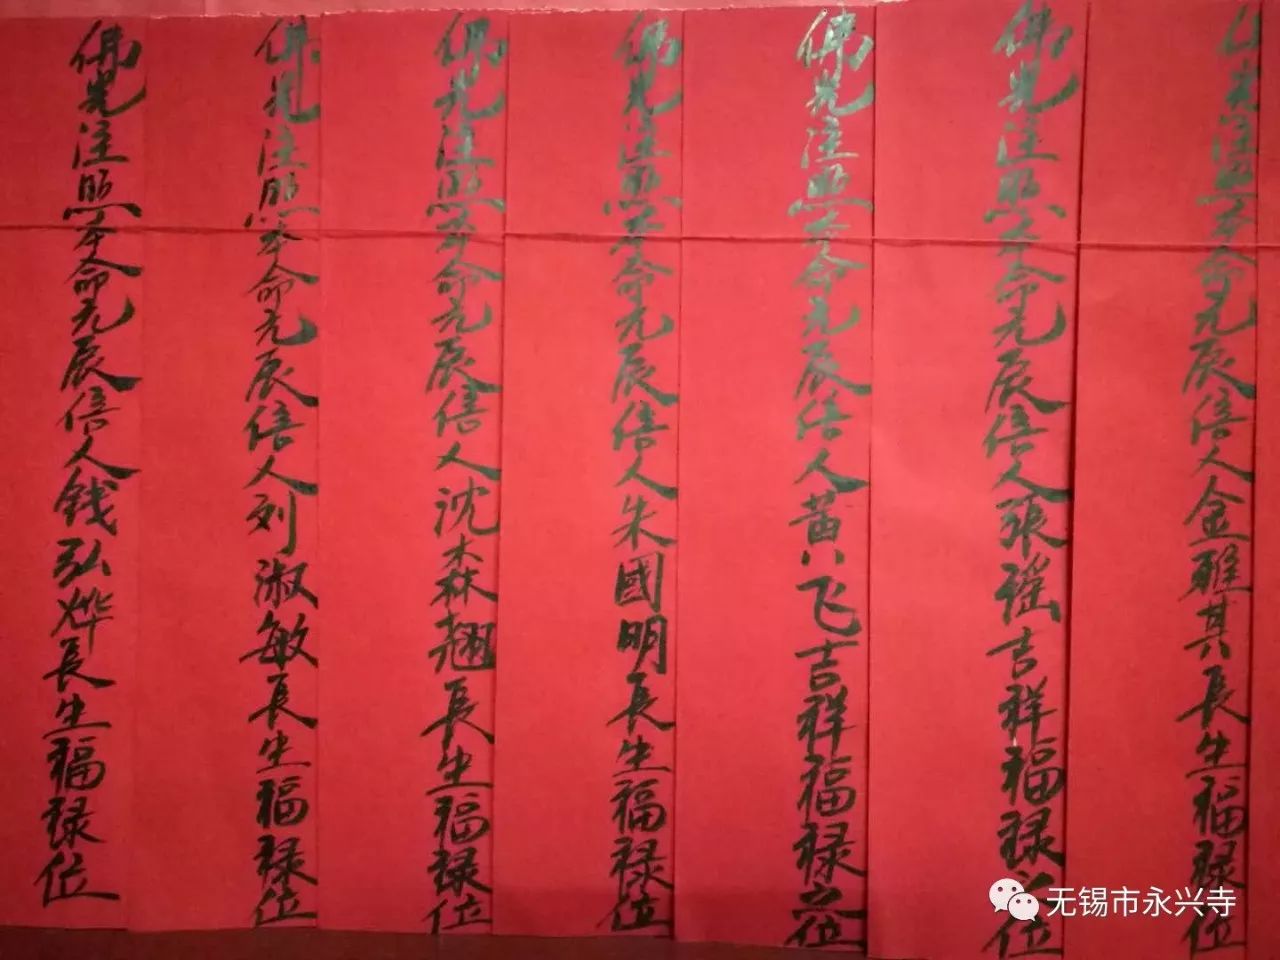 佛光注照本命元辰信人金雅其長生福禄位
佛光注照本命元辰信人張謠吉祥福禄之位
佛光注照本命元辰信人黄八飞吉祥福禄之位
佛光注照本命元辰信人朱國明長生福禄位
佛光注照本命元辰信人沈森翘長生福禄位
佛光注照本命元辰信人刘淑敏長生福禄位
佛光注照本命元辰信人錢弘烨長生福禄位
无锡市永兴寺